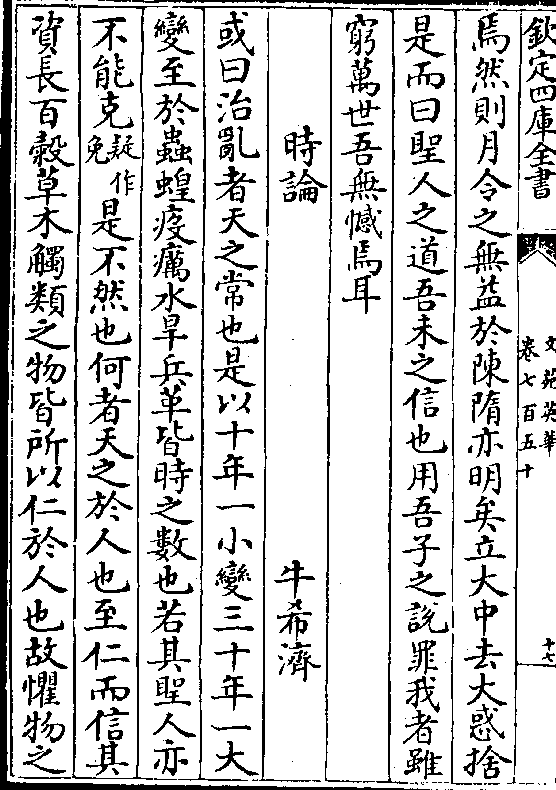 欽定四庫全書
文苑英華
卷七百五十
十七
焉然則月令之無益於陳隋亦明矣立大中去大惑捨
是而曰聖人之道吾未之信也用吾子之說罪我者雖
窮萬世吾無憾焉耳
時論 牛希濟
或曰治亂者天之常也是以十年一小變三十年一大
變至於蟲蝗疫癘水旱兵革皆時之數也若其聖人亦
不能克疑作免是不然也何者天之於人也至仁而信其
資長百穀草木觸類之物皆所以仁於人也故懼物之